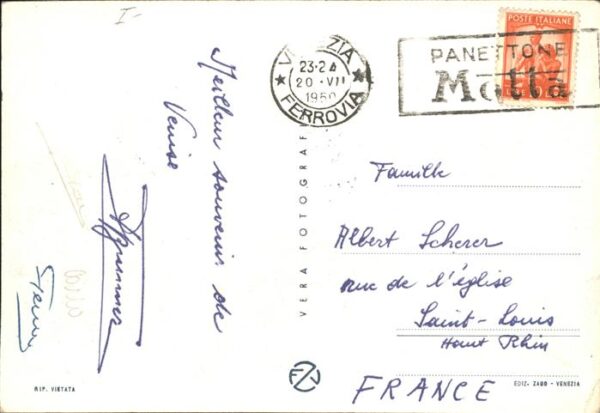 I-
Meilleur souvenir de
Venise
VENEZIA
23-24
20 · VII
1950
FERROVIA
POSTE ITALIANE
PANETTONE
Motta
VERA FOTOGRAF
Famille
Albert Scherer
rue de l'église
Saint-Louis
Haut Rhin
FRANCE
RIP. VIETATA
EDIZ. ZAGO - VENEZIA